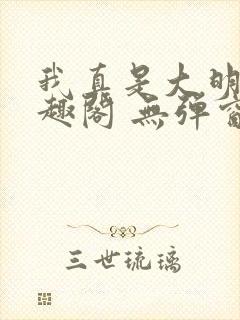 我真是大明
趣閣 無彈窗
三世琉璃